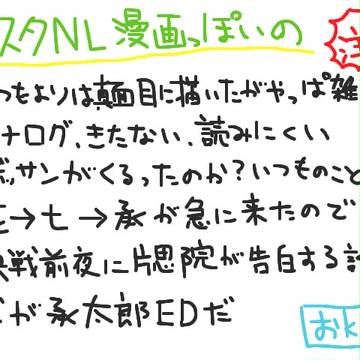 スタNL漫画っぽいの
注
つもよりは真面目に描いたがやっぱ雑
ナログ、きたない、読みにくい
ボサンがくるったのか?いつものこと
E→七→承が急に来たので
決戦前夜に片思院が告白する話
が承太郎EDだ
おk